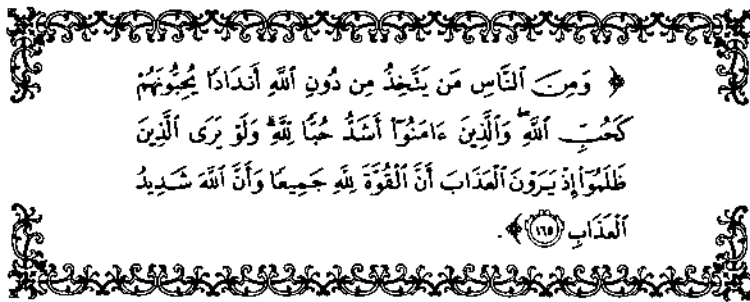 ﴿ وَمِنَ ٱلنَّاسِ مَن يَتَّخِذُ مِن دُونِ ٱللَّهِ أَندَادًا يُحِبُّونَهُمْ
كَحُبِّ ٱللَّهِ ۖ وَٱلَّذِينَ ءَامَنُوٓا۟ أَشَدُّ حُبًّا لِّلَّهِ ۗ وَلَوْ يَرَى ٱلَّذِينَ
ظَلَمُوٓا۟ إِذْ يَرَوْنَ ٱلْعَذَابَ أَنَّ ٱلْقُوَّةَ لِلَّهِ جَمِيعًا وَأَنَّ ٱللَّهَ شَدِيدُ
ٱلْعَذَابِ ١٦٥ ﴾.